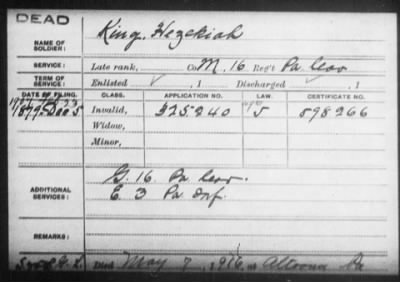 DEAD
NAME OF SOLDIER: King, Hezekiah
SERVICE: Late rank, Co. M, 16 Reg't Pa. Cav
TERM OF SERVICE: Enlisted , 1 Discharged , 1
DATE OF FILING. CLASS. APPLICATION NO. LAW. CERTIFICATE NO.
1879 Dec 5 Invalid, 325240 5 598266
Widow,
Minor,
ADDITIONAL SERVICES: G. 16 Pa. Cav.
E 3 Pa. Inf.
REMARKS:
Died May 7, 1916, at Altoona Pa